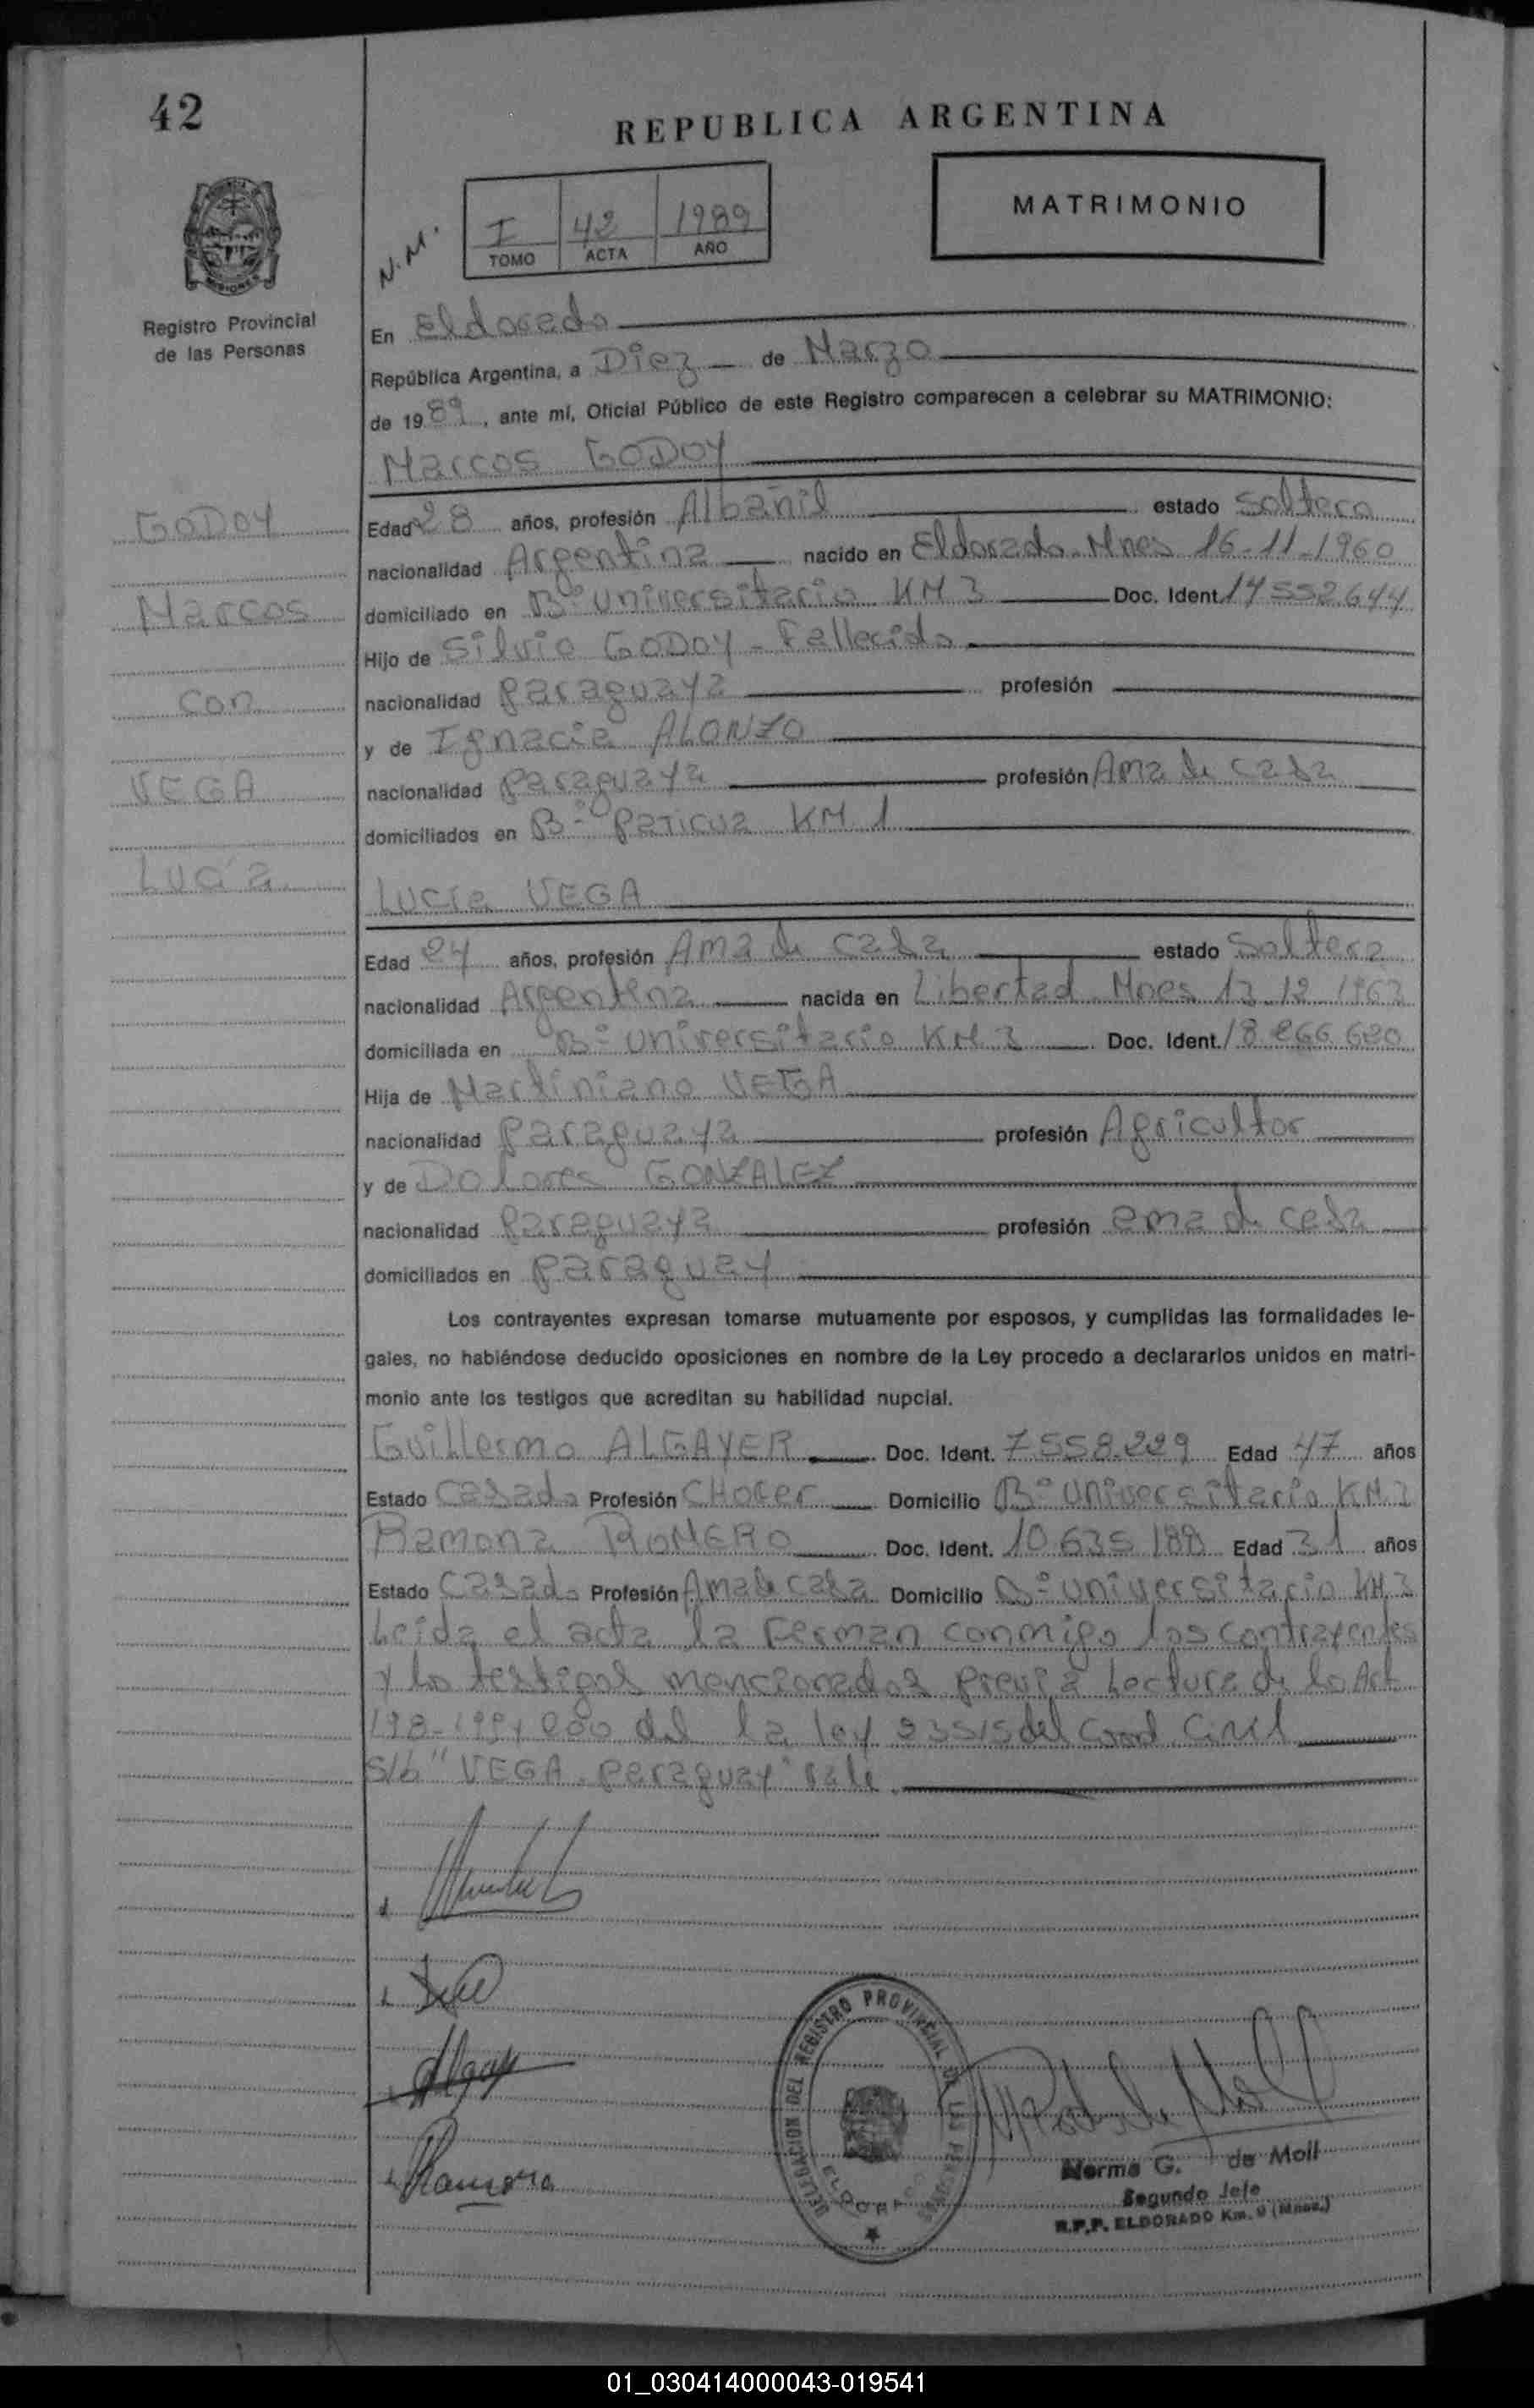 42
REPUBLICA ARGENTINA
MATRIMONIO
I 42 1989
TOMO ACTA AÑO
N.M.
Registro Provincial
de las Personas
En Eldorado
República Argentina, a Diez de Marzo
de 1989, ante mí, Oficial Público de este Registro comparecen a celebrar su MATRIMONIO:
Marcos GODOY
GODOY
Marcos
con
VEGA
Lucía
Edad 28 años, profesión Albañil estado Soltero
nacionalidad Argentina nacido en Eldorado Mnes 16-11-1960
domiciliado en Bº Universitario KM 3 Doc. Ident. 14 552 644
Hijo de Silvio GODOY - Fallecido
nacionalidad paraguaya profesión
y de Ignacia ALONZO
nacionalidad paraguaya profesión Ama de casa
domiciliados en Bº KM 1
Lucía VEGA
Edad 24 años, profesión Ama de casa estado Soltera
nacionalidad Argentina nacida en Libertad Mnes 13-12
domiciliada en Bº Universitario KM 3 Doc. Ident. 18.266.680
Hija de Martiniano VEGA
nacionalidad paraguaya profesión Agricultor
y de Dolores GONZALEZ
nacionalidad Paraguaya profesión ama de casa
domiciliados en paraguay
Los contrayentes expresan tomarse mutuamente por esposos, y cumplidas las formalidades le-
gales, no habiéndose deducido oposiciones en nombre de la Ley procedo a declararlos unidos en matri-
monio ante los testigos que acreditan su habilidad nupcial.
Guillermo ALGAYER Doc. Ident. 7.558.229 Edad 47 años
Estado Casado Profesión CHOFER Domicilio Bº Universitario KM 3
Ramona ROMERO Doc. Ident. 10 635 188 Edad 31 años
Estado Casada Profesión Ama de casa Domicilio Bº Universitario KM 3
Leída el acta la Ferman conmigo los contrayentes
y los testigos mencionados previa Lectura de los Art
198-199 y 200 del la ley 23515 del Civil
S/b "VEGA - paraguay" vale
Ramona
DELEGACION DEL REGISTRO PROVINCIAL DE LAS PERSONAS
ELDORADO
Norma G. de Moll
Segundo Jefe
R.P.P. ELDORADO Km. 9 (Mnes.)
01_030414000043-019541